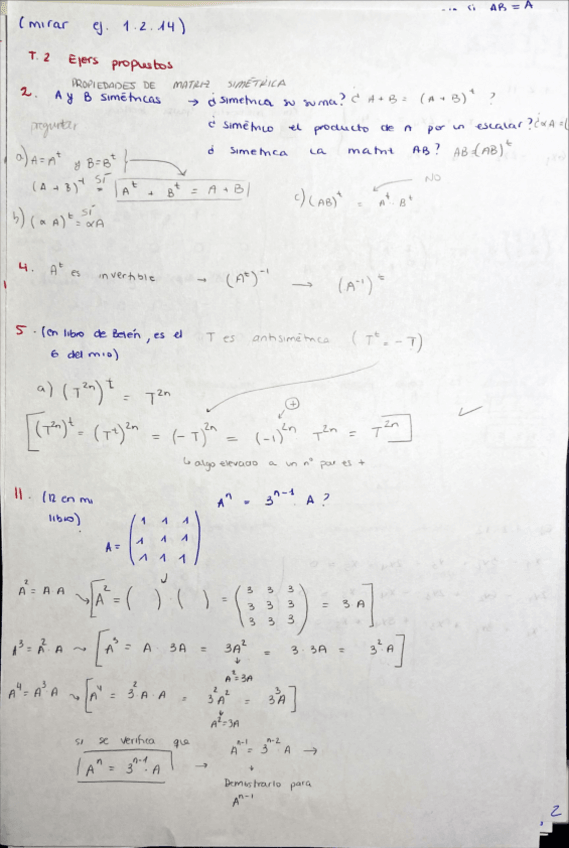 ... si AB = A
(mirar ej. 1.2.14)
T.2 Ejers propustos
PROPIEDADES DE MATRIZ SIMÉTRICA
2. A y B simétricas → ¿ simetrica su suma? ¿ A + B = (A + B)^t ?
preguntar
¿ simétrico el producto de n por un escalar? ¿ αA = (
¿ simetrica la matriz AB? AB = (AB)^t
a) A = A^t y B = B^t
(A + B)^t =^SÍ A^t + B^t = A + B
b) (α A)^t =^SÍ αA
c) (AB)^t = A^t · B^t NO
4. A^t es invertible → (A^t)^-1 → (A^-1)^t
5. (en libro de Belén, es el 6 del mio) T es antisimétrica (T^t = -T)
a) (T^2n)^t = T^2n
[(T^2n)^t = (T^t)^2n = (-T)^2n = (-1)^2n T^2n = T^2n] ✓
(+)
↳ algo elevado a un nº par es +
11. (12 en mi libro) A^n = 3^n-1 · A ?
A = (1 1 1
1 1 1
1 1 1)
A^2 = A·A ⤳ [A^2 = ( ) · ( ) = (3 3 3
3 3 3
3 3 3) = 3A]
A^3 = A^2 · A ⤳ [A^3 = A · 3A = 3A^2 = 3 · 3A = 3^2 A]
A^2 = 3A
A^4 = A^3 A ⤳ [A^4 = 3^2 A · A = 3^2 A^2 = 3^3 A]
A^2 = 3A
si se verifica que A^n-1 = 3^n-2 A →
A^n = 3^n-1 · A →
Demostrarlo para
A^n-1
2